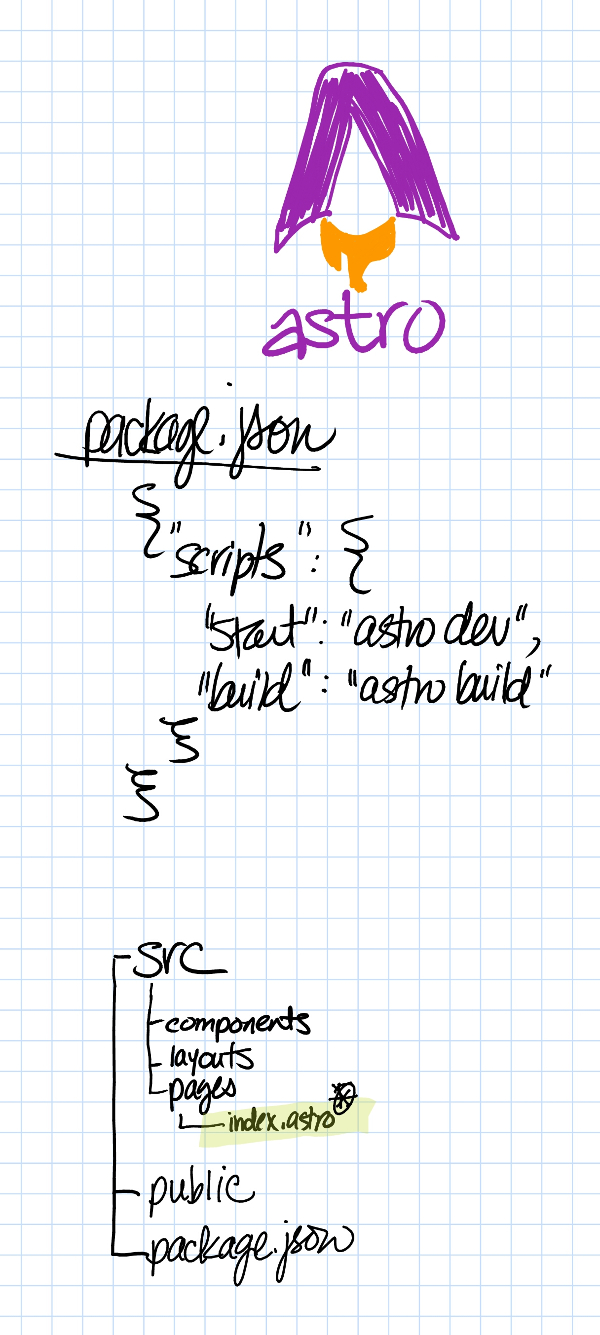 astro
package.json
{
"scripts": {
"start": "astro dev",
"build": "astro build"
}
}
src
components
layouts
pages
index.astro*
public
package.json